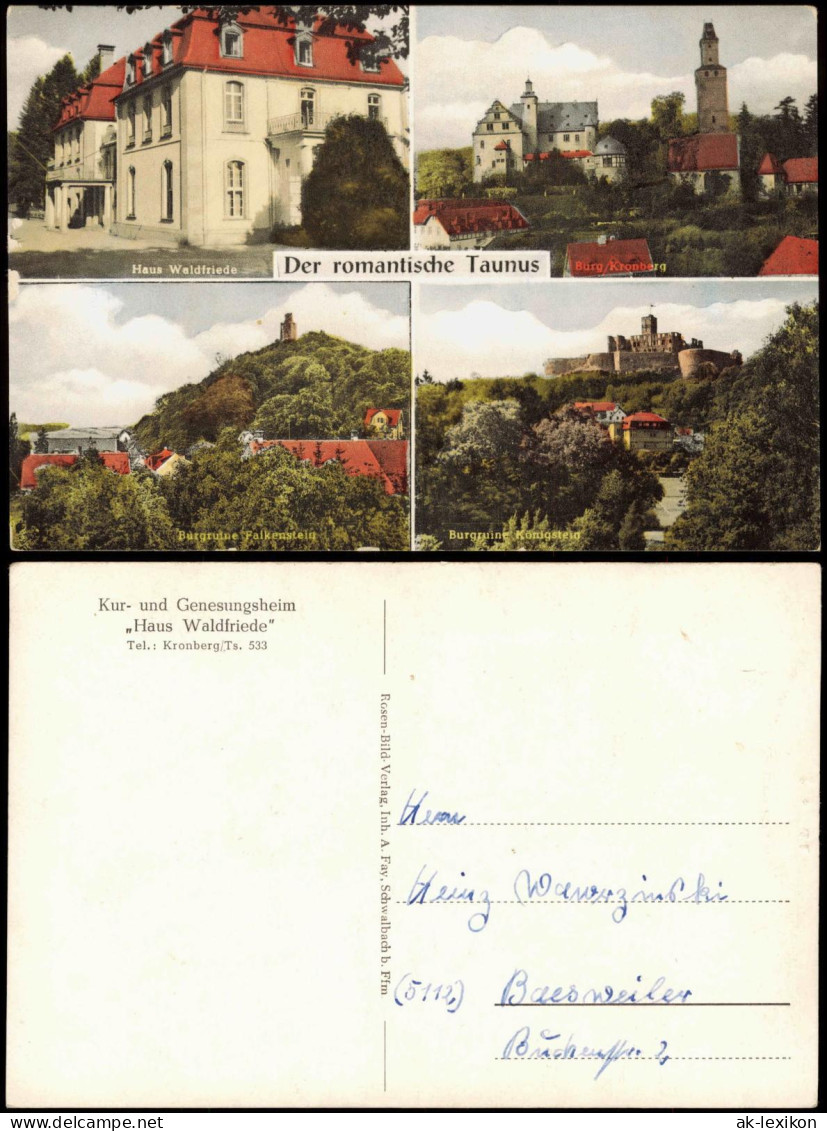 Haus Waldfriede
Burg/Kronberg
Der romantische Taunus
Burgruine Falkenstein
Burgruine Königstein
Kur- und Genesungsheim
„Haus Waldfriede"
Tel.: Kronberg/Ts. 533
Rosen-Bild-Verlag, Inh. A. Fay, Schwalbach b. Ffm
Herrn
Heinz Wawrzinski
(5112) Baesweiler
2
www.ansichtskarten-lexikon.de
ak-lexikon.com